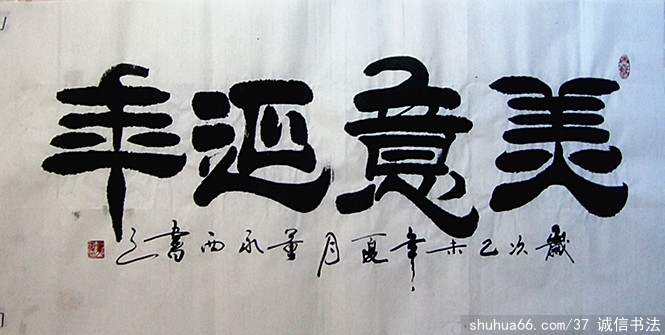 美意延年
歲次乙未年夏月董西書之
shuhua66.com/37 诚信书法